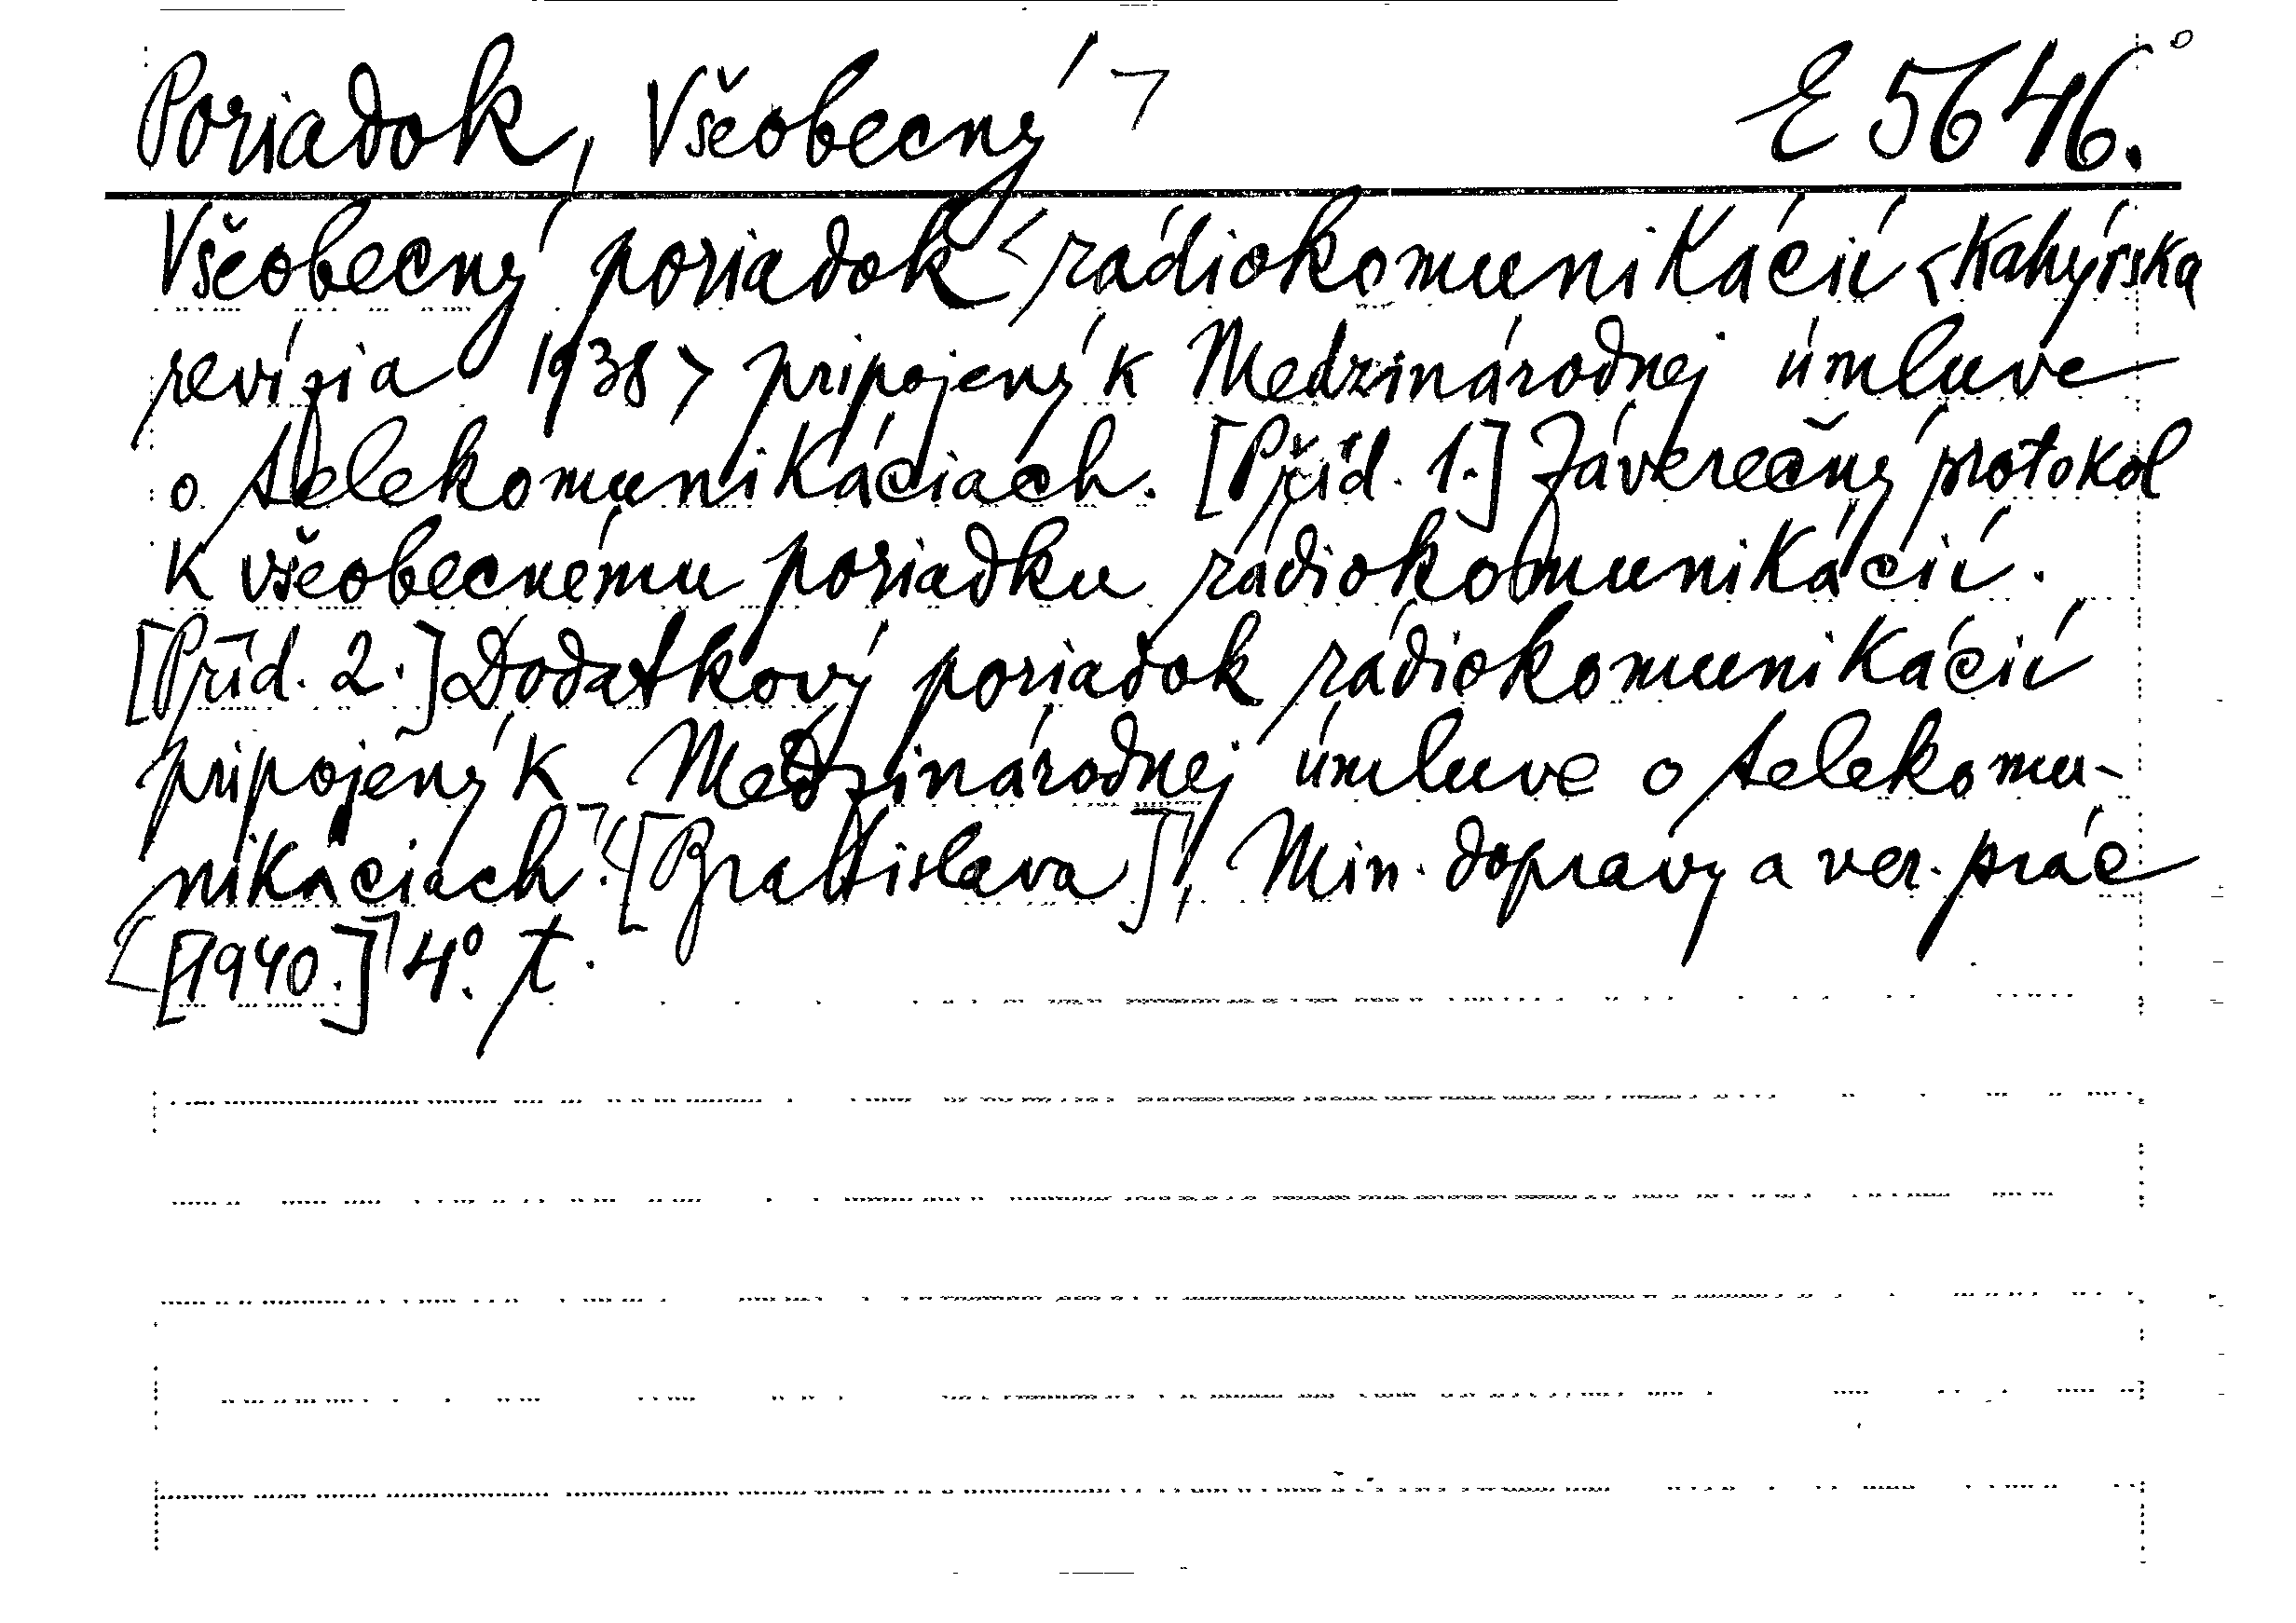 Poriadok, Všeobecný ⌝ E 5646.
Všeobecný poriadok rádiokomunikácií <Kahýrska
revízia 1938> pripojený k Medzinárodnej úmluve
o telekomunikáciach. [Příd. 1.] Záverečný protokol
k všeobecnému poriadku rádiokomunikácií.
[Příd. 2.] Dodatkový poriadok rádiokomunikácií
pripojený k Medzinárodnej úmluve o telekomu-
nikáciach. [Bratislava], Min. dopravy a ver. prác
[1940.] 4°. t.